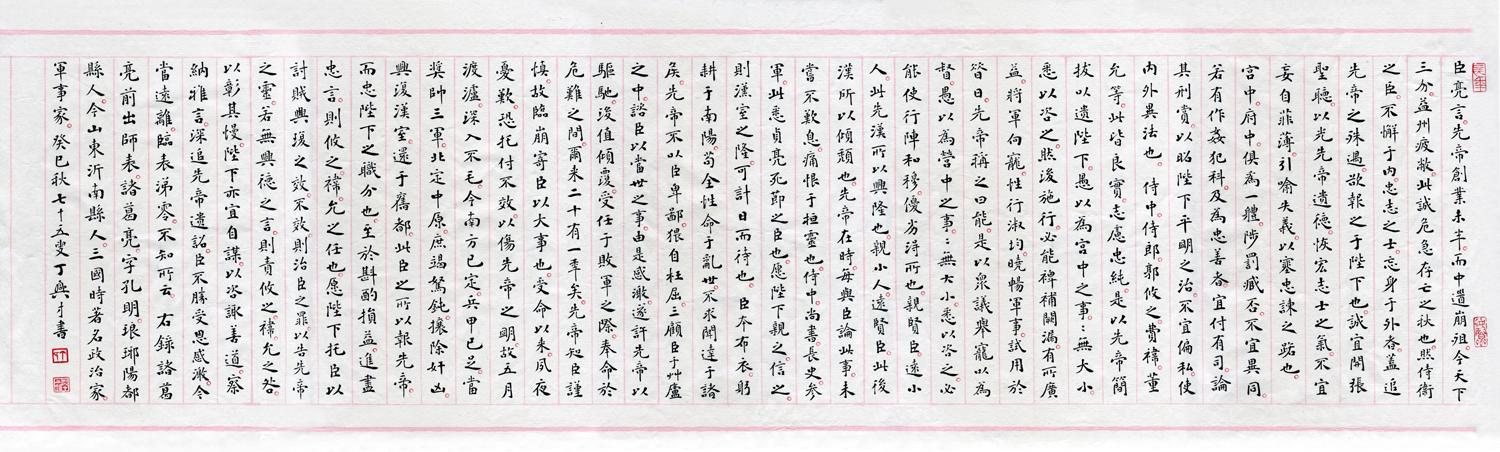 臣亮言先帝創業未半而中道崩殂今天下
三分益州疲敝此誠危急存亡之秋也然侍衛
之臣不懈于內忠志之士忘身于外者蓋追
先帝之殊遇欲報之于陛下也誠宜開張
聖聽以光先帝遺德恢宏志士之氣不宜
妄自菲薄引喻失義以塞忠諫之路也
宮中府中俱為一體陟罰臧否不宜異同
若有作姦犯科及為忠善者宜付有司論
其刑賞以昭陛下平明之治不宜偏私使
內外異法也侍中侍郎郭攸之費禕董
允等此皆良實志慮忠純是以先帝簡
拔以遺陛下愚以為宮中之事:無大小
悉以咨之然後施行必能裨補闕漏有所廣
益將軍向寵性行淑均曉暢軍事試用於
昔日先帝稱之曰能是以眾議舉寵以為
督愚以為營中之事:無大小悉以咨之必
能使行陣和穆優劣得所也親賢臣遠小
人此先漢所以興隆也親小人遠賢臣此後
漢所以傾頹也先帝在時每與臣論此事未
嘗不歎息痛恨于桓靈也侍中尚書長史參
軍此悉貞亮死節之臣也愿陛下親之信之
則漢室之隆可計日而待也臣本布衣躬
耕于南陽苟全性命于亂世不求聞達于諸
侯先帝不以臣卑鄙猥自枉屈三顧臣于艸廬
之中諮臣以當世之事由是感激遂許先帝以
驅馳後值傾覆受任于敗軍之際奉命於
危難之間爾來二十有一年矣先帝知臣謹
慎故臨崩寄臣以大事也受命以來夙夜
憂歎恐托付不效以傷先帝之明故五月
渡瀘深入不毛今南方已定兵甲已足當
獎帥三軍北定中原庶竭駑鈍攘除奸凶
興復漢室還于舊都此臣之所以報先帝
而忠陛下之職分也至於斟酌損益進盡
忠言則攸之禕允之任也愿陛下托臣以
討賊興復之效不效則治臣之罪以告先帝
之靈若無興德之言則責攸之禕允之咎
以彰其慢陛下亦宜自謀以咨諏善道察
納雅言深追先帝遺詔臣不勝受恩感激今
當遠離臨表涕零不知所云右錄諸葛
亮前出師表諸葛亮字孔明琅琊陽都
縣人今山東沂南縣人三國時著名政治家
軍事家癸巳秋七十五叟丁興才書